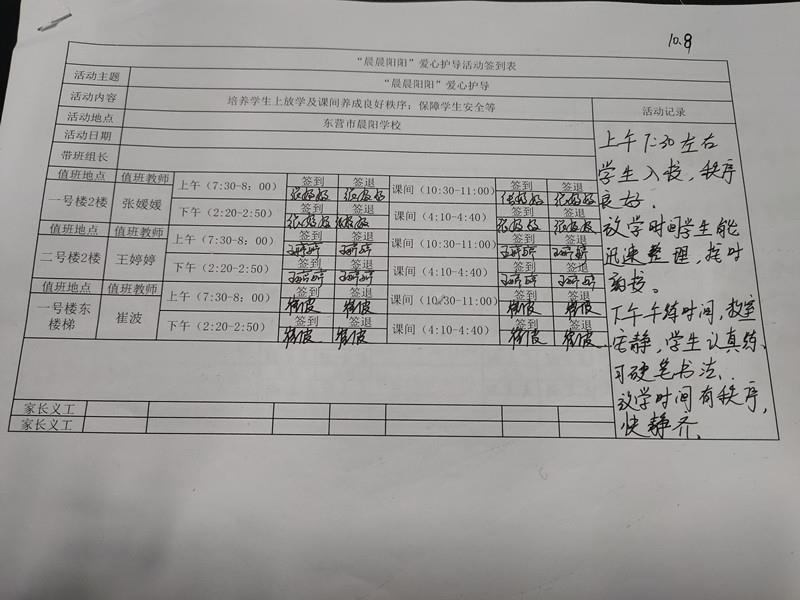 10.9
“晨晨阳阳”爱心护导活动签到表
活动主题 “晨晨阳阳”爱心护导
活动内容 培养学生上放学及课间养成良好秩序；保障学生安全等 活动记录
活动地点 东营市晨阳学校
活动日期
带班组长
值班地点 值班教师 上午（7:30-8：00） 签到 签退 课间（10:30-11:00） 签到 签退
一号楼2楼 张媛媛 张媛媛 张媛媛 张媛媛 张媛媛
下午（2:20-2:50） 签到 签退 课间（4:10-4:40） 签到 签退
张媛媛 张媛媛 张媛媛 张媛媛
值班地点 值班教师 上午（7:30-8：00） 签到 签退 课间（10:30-11:00） 签到 签退
二号楼2楼 王婷婷 王婷婷 王婷婷 王婷婷 王婷婷
下午（2:20-2:50） 签到 签退 课间（4:10-4:40） 签到 签退
王婷婷 王婷婷 王婷婷 王婷婷
值班地点 值班教师 上午（7:30-8：00） 签到 签退 课间（10:30-11:00） 签到 签退
一号楼东楼梯 崔波 崔波 崔波 崔波 崔波
下午（2:20-2:50） 签到 签退 课间（4:10-4:40） 签到 签退
崔波 崔波 崔波 崔波
家长义工
家长义工
上午7:30左右
学生入校，秩序
良好.
放学时间学生能
迅速整理，按时
离校。
下午午练时间，教室
安静，学生认真练
习硬笔书法.
放学时间有秩序，
快静齐.